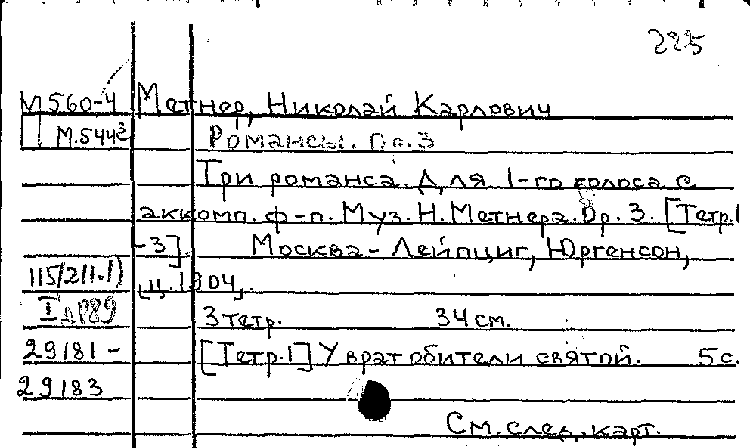 225
М560-4 Метнер, Николай Карлович
М.544
Романсы. Ор.3
Три романса. Для 1-го голоса с
аккомп. ф-п. Муз. Н. Метнера. Ор. 3. [Тетр.1
-3] Москва - Лейпциг, Юргенсон,
ц. 1904.
115/211.1)
3 тетр. 34 см.
29181 - [Тетр.1] У врат обители святой. 5 с.
29183
См. след. карт.